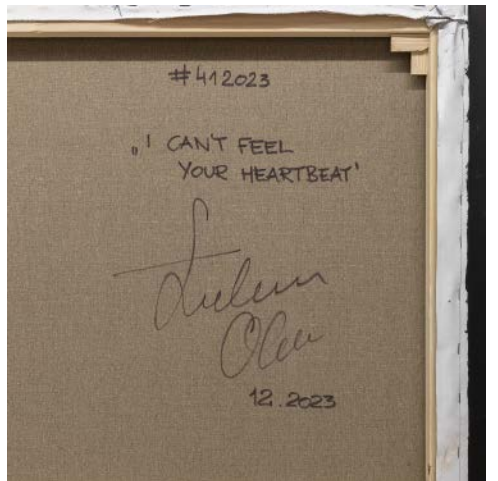 #412023
„I CAN'T FEEL
YOUR HEARTBEAT'
12.2023